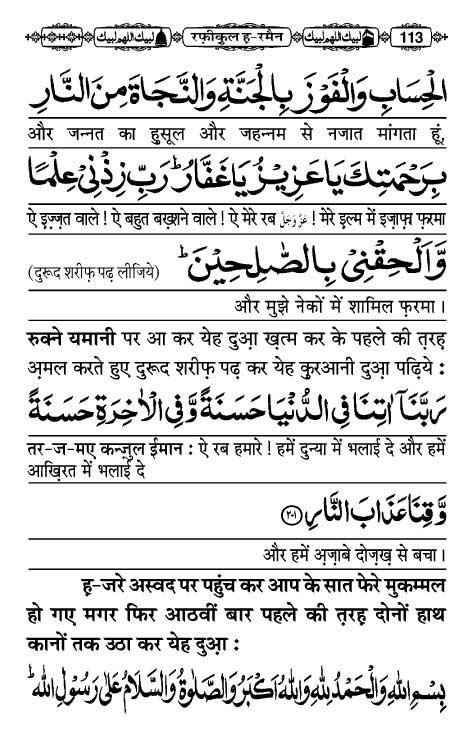 لبيك اللهم لبيك रफ़ीकुल ह-रमैन لبيك اللهم لبيك 113
الْحِسَابِ وَالْفَوْزَ بِالْجَنَّةِ وَالنَّجَاةَ مِنَ النَّارِ
और जन्नत का हुसूल और जहन्नम से नजात मांगता हूं,
بِرَحْمَتِكَ يَا عَزِيْزُ يَا غَفَّارُ ؕ رَبِّ زِدْنِيْ عِلْمًا
ऐ इज़्ज़त वाले ! ऐ बहुत बख़्शने वाले ! ऐ मेरे रब عَزَّوَجَلَّ ! मेरे इल्म में इज़ाफ़ा फ़रमा
وَّاَلْحِقْنِيْ بِالصّٰلِحِيْنَ ؕ (दुरूद शरीफ़ पढ़ लीजिये)
और मुझे नेकों में शामिल फ़रमा ।
रुक्ने यमानी पर आ कर येह दुआ़ ख़त्म कर के पहले की त़रह़
अ़मल करते हुए दुरूद शरीफ़ पढ़ कर येह कुरआनी दुआ़ पढ़िये :
رَبَّنَاۤ اٰتِنَا فِي الدُّنْيَا حَسَنَةً وَّفِي الْاٰخِرَةِ حَسَنَةً
तर-ज-मए कन्ज़ुल ईमान : ऐ रब हमारे ! हमें दुन्या में भलाई दे और हमें
आख़िरत में भलाई दे
وَّقِنَا عَذَابَ النَّارِ ﴿٢٠١﴾
और हमें अ़ज़ाबे दोज़ख़ से बचा ।
ह़-जरे अस्वद पर पहुंच कर आप के सात फेरे मुकम्मल
हो गए मगर फिर आठवीं बार पहले की त़रह़ दोनों हाथ
कानों तक उठा कर येह दुआ़ :
بِسْمِ اللهِ وَالْحَمْدُ لِلّٰهِ وَاللهُ اَكْبَرُ وَالصَّلٰوةُ وَالسَّلَامُ عَلٰى رَسُوْلِ اللهِ ؕ